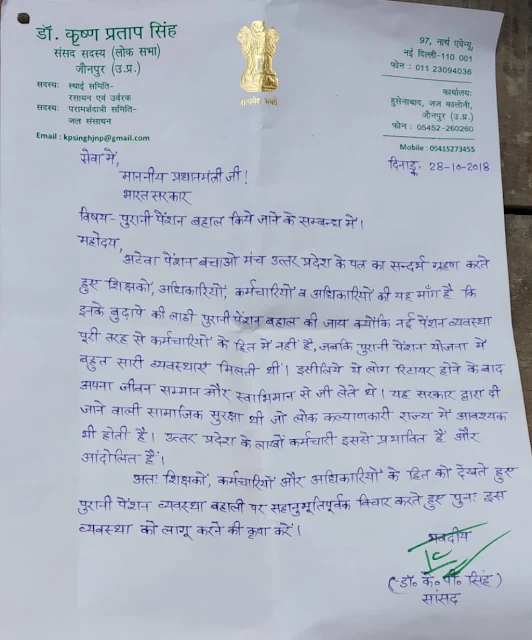 डॉ. कृष्ण प्रताप सिंह
संसद सदस्य (लोक सभा)
जौनपुर (उ.प्र.)
सदस्यः स्थाई समिति-
रसायन एवं उर्वरक
सदस्यः परामर्शदात्री समिति-
जल संसाधन
Email : kpsinghjnp@gmail.com
सत्यमेव जयते
97, नार्थ एवेन्यू,
नई दिल्ली-110 001
फोन : 011 23094036
कार्यालयः
हुसेनाबाद, जज कालोनी,
जौनपुर (उ.प्र.)
फोन : 05452-260260
Mobile : 09415273455
दिनाङ्क 28-10-2018
सेवा में,
माननीय प्रधानमंत्री जी !
भारत सरकार
विषय- पुरानी पेंशन बहाल किये जाने के सम्बन्ध में।
महोदय,
अटेवा पेंशन बचाओ मंच उत्तर प्रदेश के पत्र का सन्दर्भ ग्रहण करते
हुए शिक्षकों, अधिकारियों, कर्मचारियों व अधिकारियों की यह माँग है कि
इनके बुढ़ापे की लाठी पुरानी पेंशन बहाल की जाय क्योंकि नई पेंशन व्यवस्था
पूरी तरह से कर्मचारियों के हित में नहीं है, जबकि पुरानी पेंशन योजना में
बहुत सारी व्यवस्थाएं मिलती थीं। इसीलिये ये लोग रिटायर होने के बाद
अपना जीवन सम्मान और स्वाभिमान से जी लेते थे। यह सरकार द्वारा दी
जाने वाली सामाजिक सुरक्षा थी जो लोक कल्याणकारी राज्य में आवश्यक
भी होती है। उत्तर प्रदेश के लाखों कर्मचारी इससे प्रभावित हैं और
आंदोलित हैं।
अतः शिक्षकों, कर्मचारियों और अधिकारियों के हित को देखते हुए
पुरानी पेंशन व्यवस्था बहाली पर सहानुभूतिपूर्वक विचार करते हुए पुनः इस
व्यवस्था को लागू करने की कृपा करें।
भवदीय
(डॉ० के० पी० सिंह)
सांसद